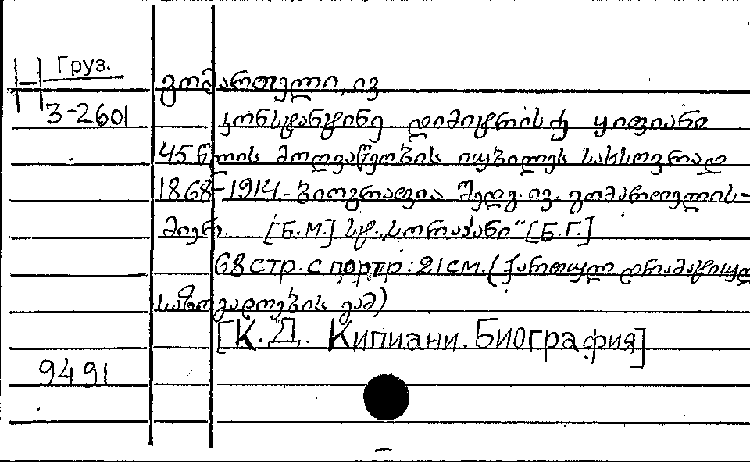 Груз.
Н გომართელი, ივ
3-2601 კონსტანტინე დიმიტრის ძე ყიფიანი
45 წლის მოღვაწეობის იუბილეს სახსოვრად
1868-1914 - ბიოგრაფია შედგ. ივ. გომართელის-
მიერ. [Б.М.] სტ. „სორაპანი" [Б.Г.]
68 стр. с портр. 21 см. (ქართულ დრამატიულ
საზოგადოების გამ)
[К. Д. Кипиани. Биография]
9491